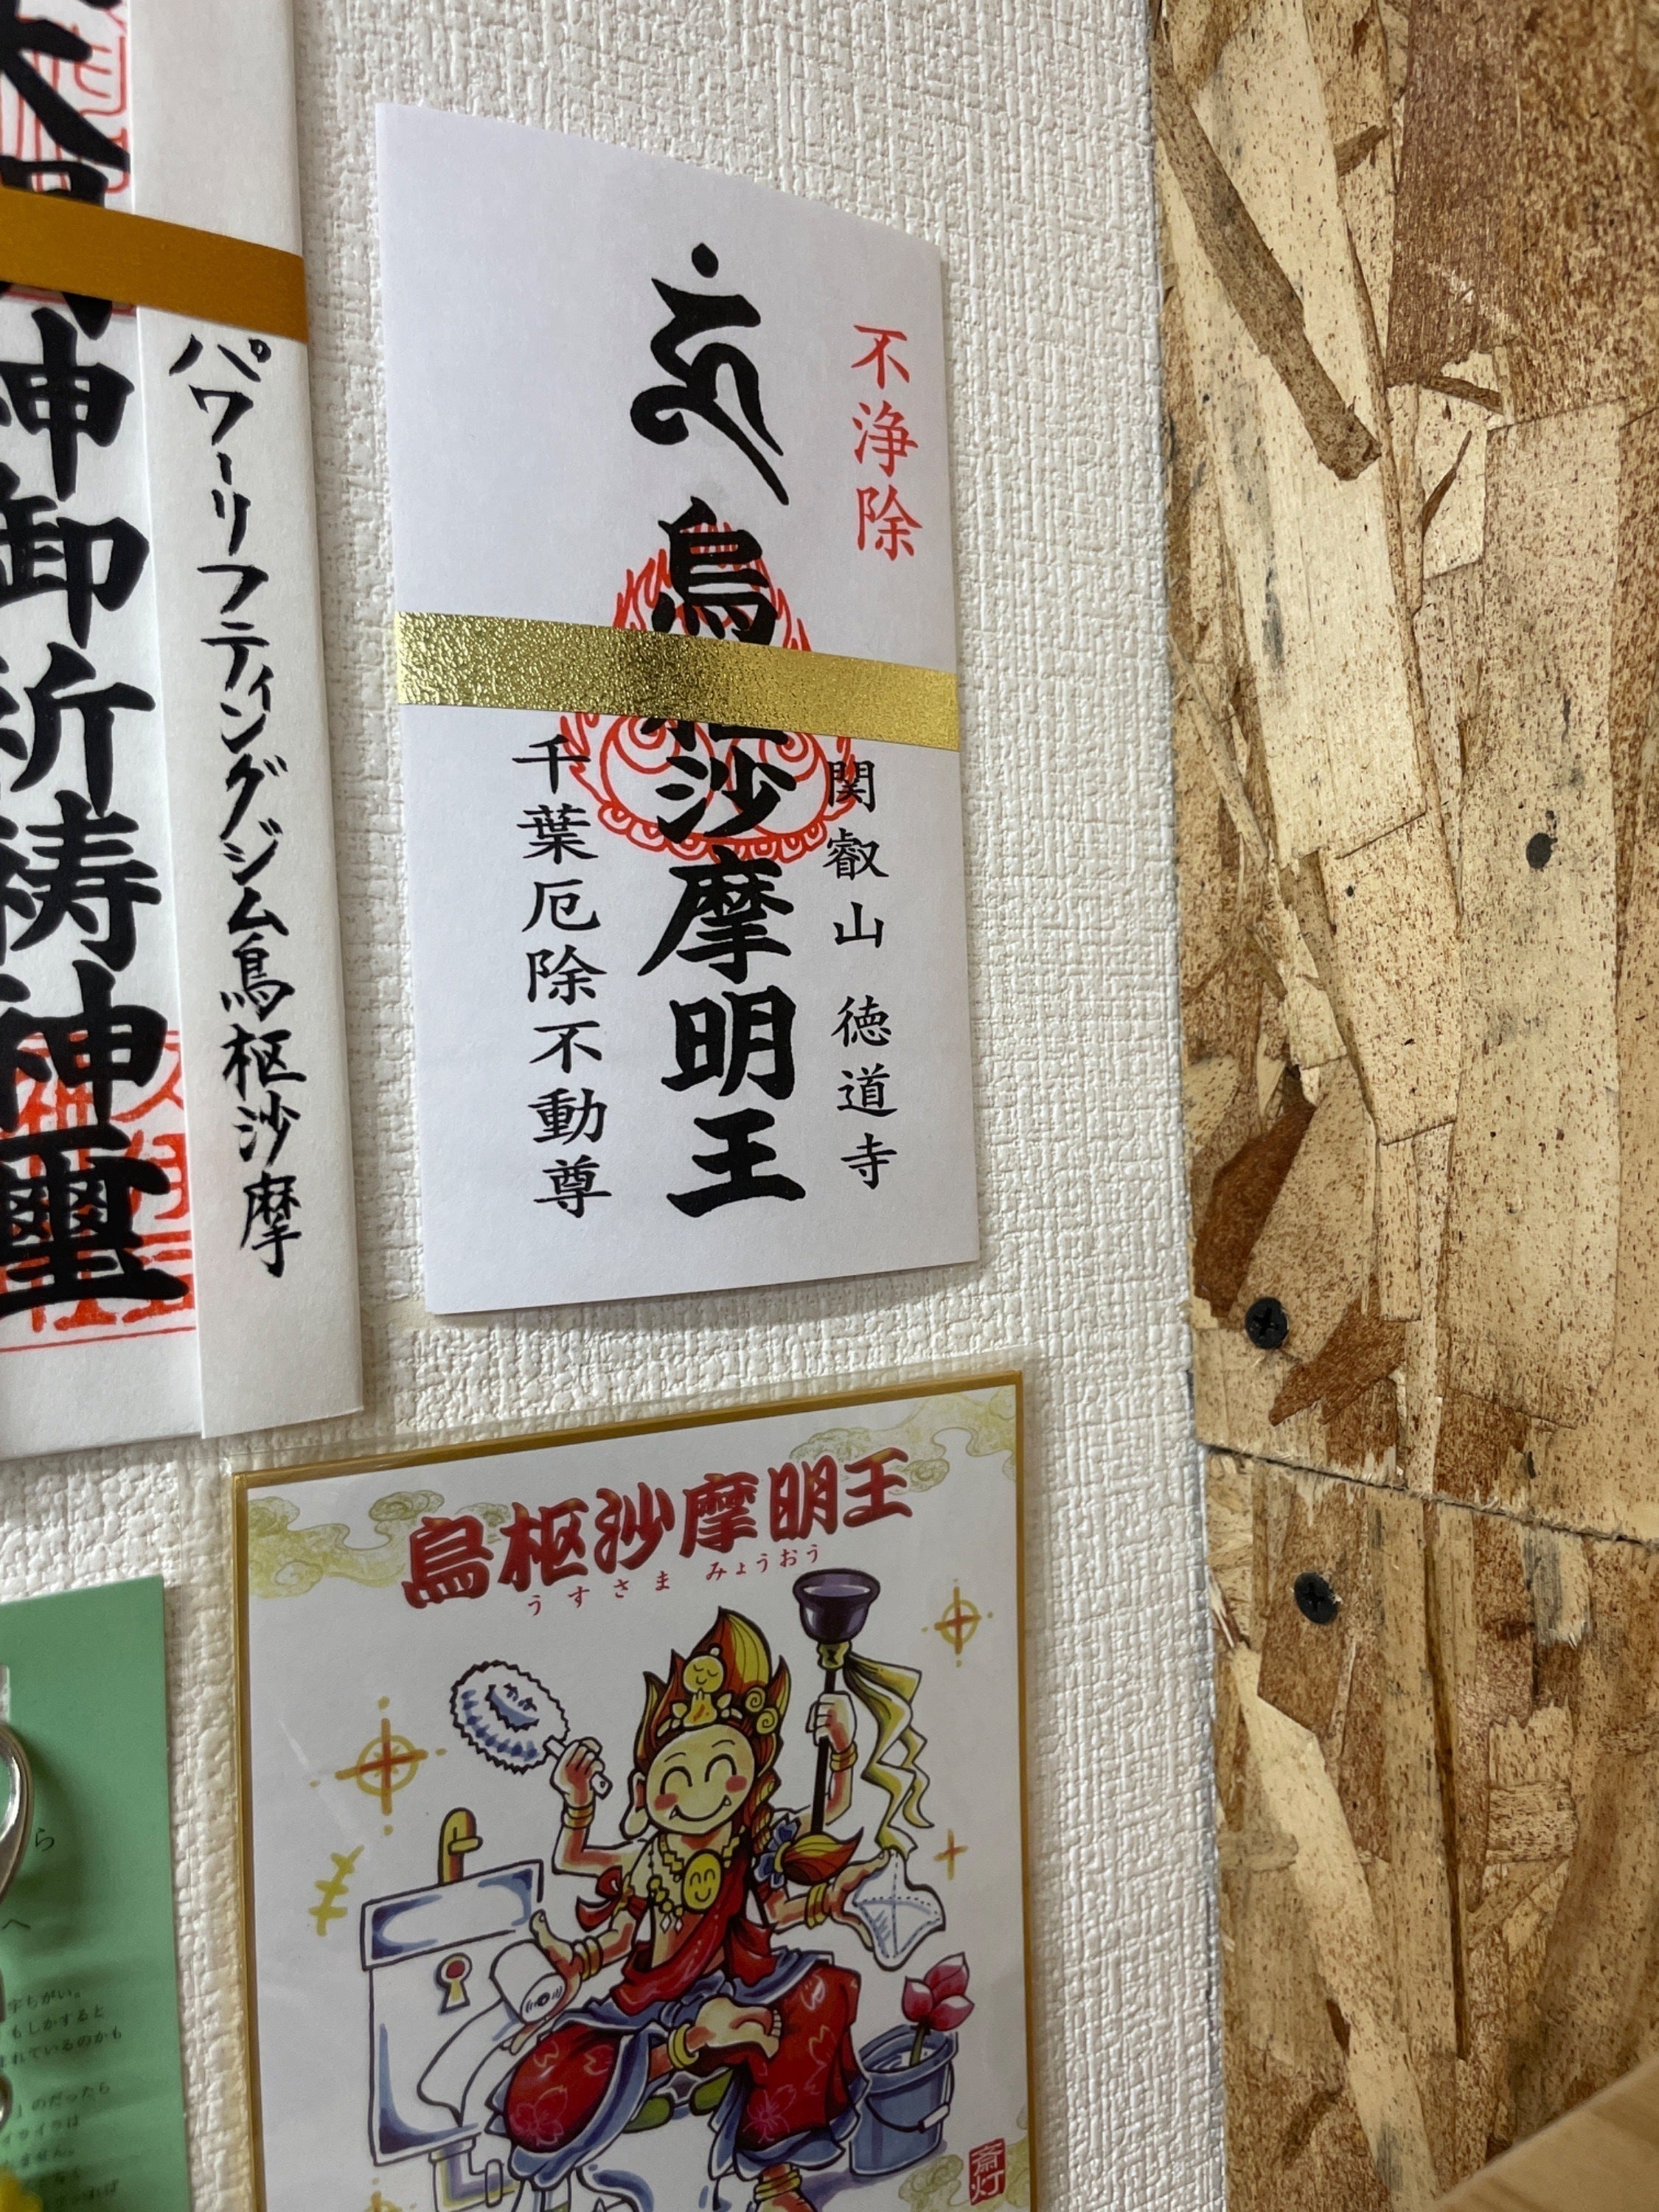 不浄除
烏枢沙摩明王
関叡山 徳道寺
千葉厄除不動尊
パワーリフティングジム烏枢沙摩
神御祈祷神璽
烏枢沙摩明王
うすさま みょうおう
ら
へ
字ちがい。
もしかすると
まれているのかも
」のだったら
イライラは
ません。
斎灯